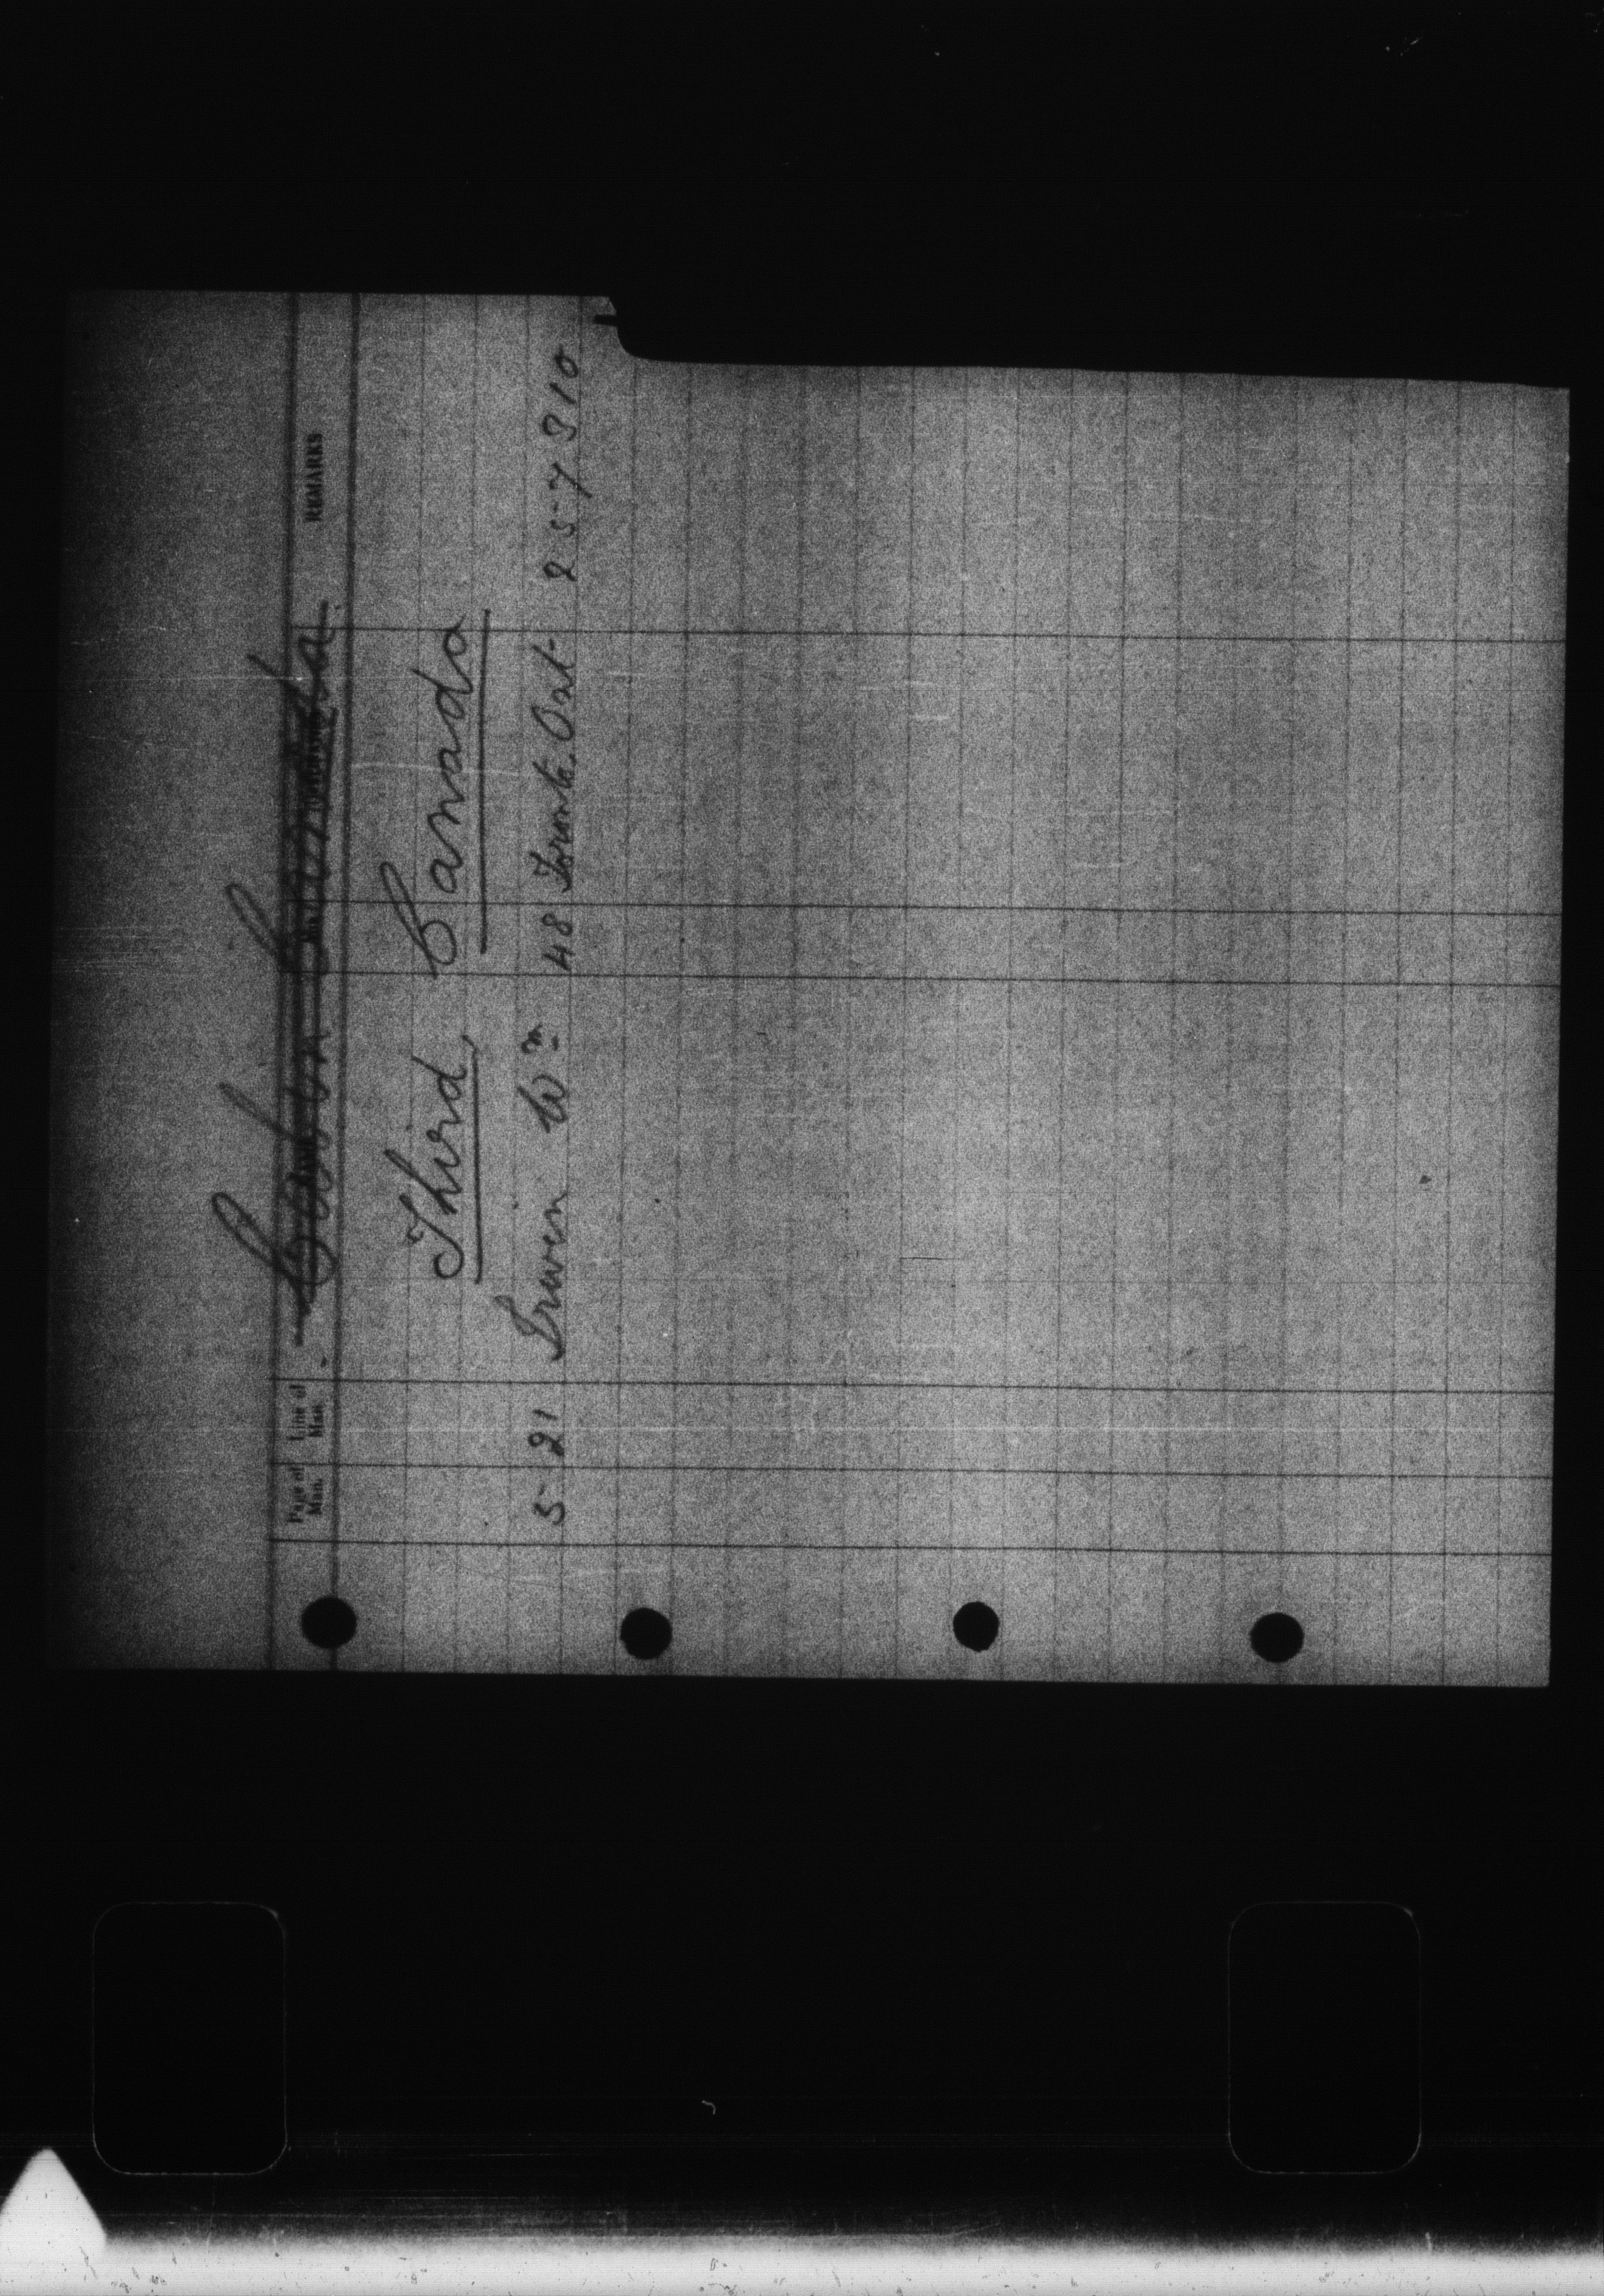 Page of Man. Line of Man. REMARKS
Cabin Canada
Third Canada
5 21 Irwin Wm 48 Toronto. Ont 257310